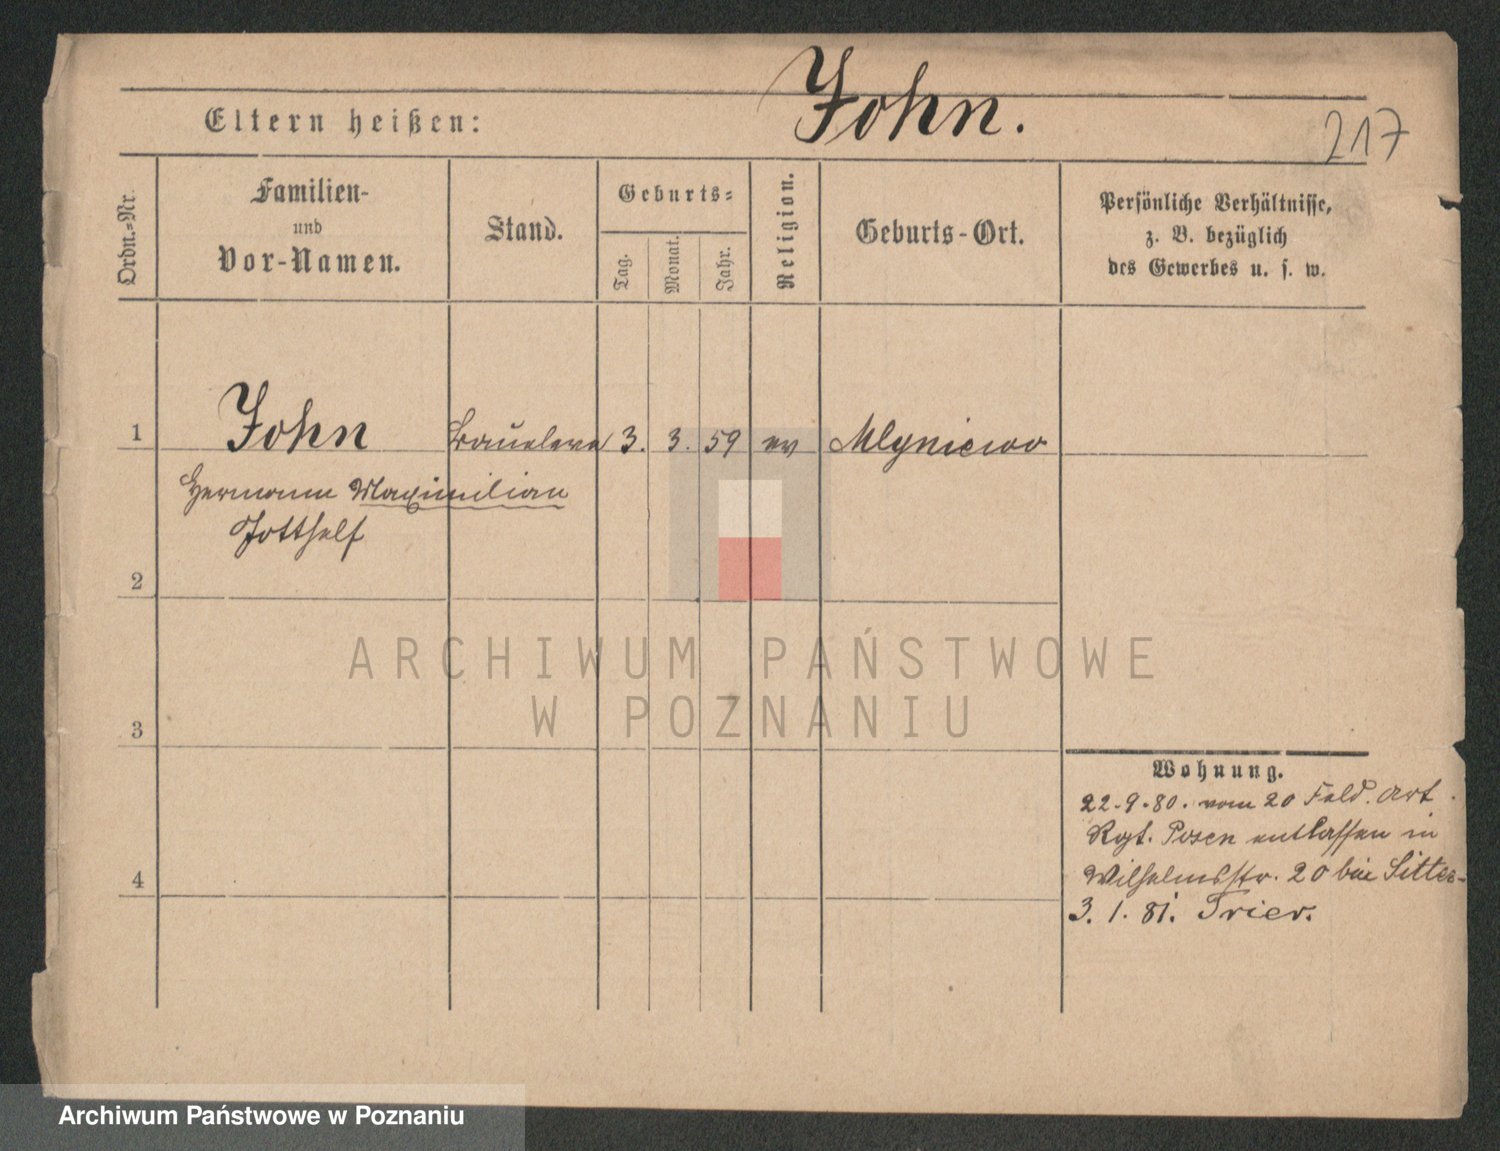 John.
217
Eltern heißen:
Ordn.-Nr.
Familien-
und
Vor-Namen.
Stand.
Geburts-
Tag.
Monat.
Jahr.
Religion.
Geburts-Ort.
Persönliche Verhältnisse,
z. B. bezüglich
des Gewerbes u. s. w.
1 John 3. 3. 59 ev Mlyniewo
Hermann Maximilian
Gotthelf
2
3
4
Wohnung.
22.9.80. vom 20 Feld. Art.
Rgt. Posen entlassen in
Wilhelmsstr. 20 bei
3. 1. 81. Trier.
ARCHIWUM PAŃSTWOWE
W POZNANIU
Archiwum Państwowe w Poznaniu